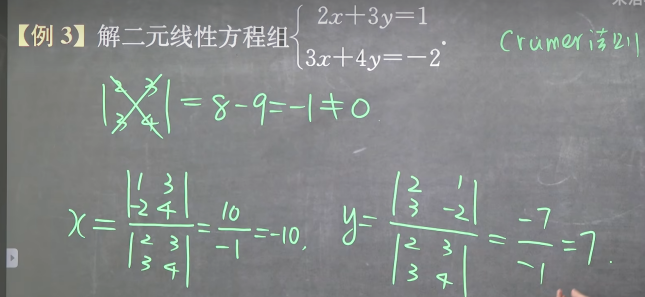 【例 3】解二元线性方程组{2x+3y=1
3x+4y=-2.
Cramer法则
|2 3
3 4| = 8-9=-1≠0
x = |1 3
-2 4| / |2 3
3 4| = 10/-1 = -10,
y = |2 1
3 -2| / |2 3
3 4| = -7/-1 = 7.